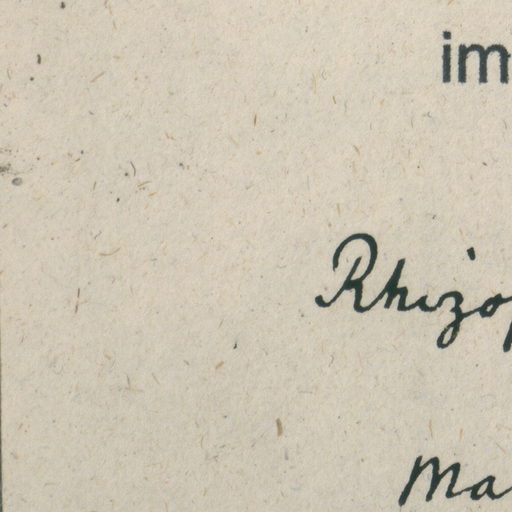 im
Rhizo
Ma